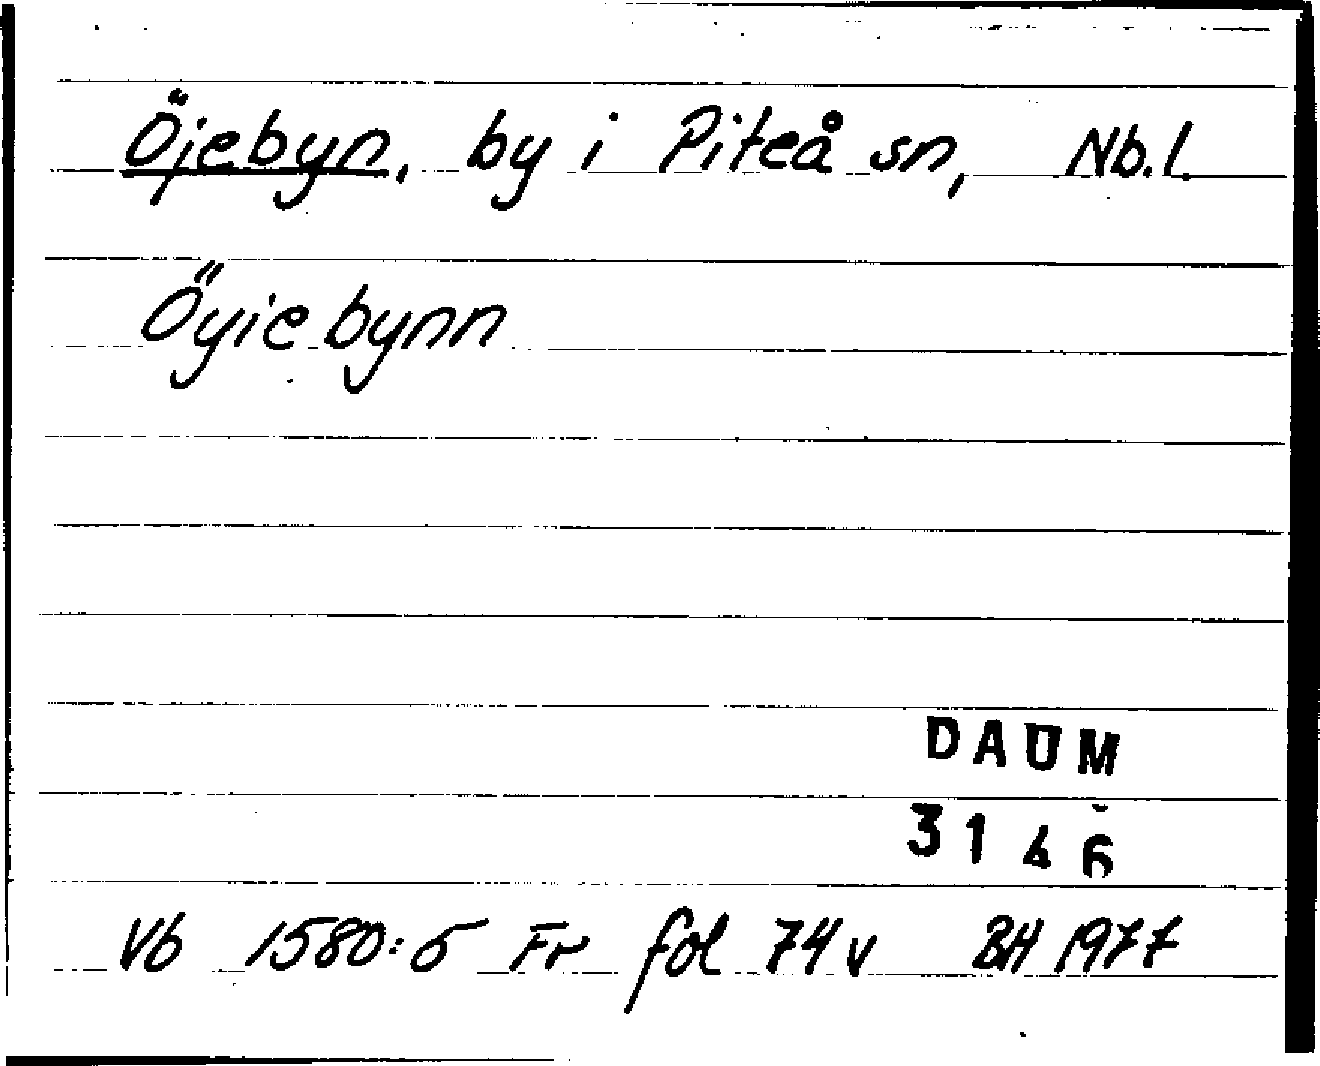 Öjebyn, by i Piteå sn, Nb.l.
Öyie bynn
DAUM
3146
Vb 1580:5 Fr fol 74 v BH 1977